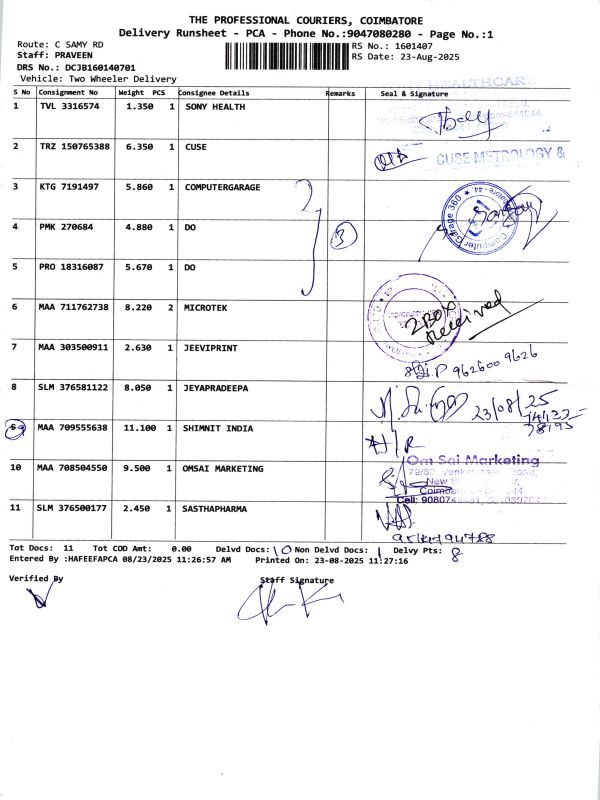 THE PROFESSIONAL COURIERS, COIMBATORE
Delivery Runsheet - PCA - Phone No.:9047080280 - Page No.:1
Route: C SAMY RD
RS No.: 1601407
Staff: PRAVEEN
RS Date: 23-Aug-2025
DRS No.: DCJB160140701
Vehicle: Two Wheeler Delivery
S No Consignment No Weight PCS Consignee Details Remarks Seal & Signature
HEALTHCARE
1 TVL 3316574 1.350 1 SONY HEALTH
2 TRZ 150765388 6.350 1 CUSE
CUSE METROLOGY &
3 KTG 7191497 5.860 1 COMPUTERGARAGE
Computer Garage 360
4 PMK 270684 4.880 1 DO
3
5 PRO 18316087 5.670 1 DO
6 MAA 711762738 8.220 2 MICROTEK
2 Box Received
7 MAA 303500911 2.630 1 JEEVIPRINT
962600 9626
8 SLM 376581122 8.050 1 JEYAPRADEEPA
23/08/25
9 MAA 709555638 11.100 1 SHIMNIT INDIA
10 MAA 708504550 9.500 1 OMSAI MARKETING
Om Sai Marketing
11 SLM 376500177 2.450 1 SASTHAPHARMA
Tot Docs: 11 Tot COD Amt: 0.00 Delvd Docs: 10 Non Delvd Docs: 1 Delvy Pts: 8
Entered By :HAFEEFAPCA 08/23/2025 11:26:57 AM Printed On: 23-08-2025 11:27:16
Verified By
Staff Signature